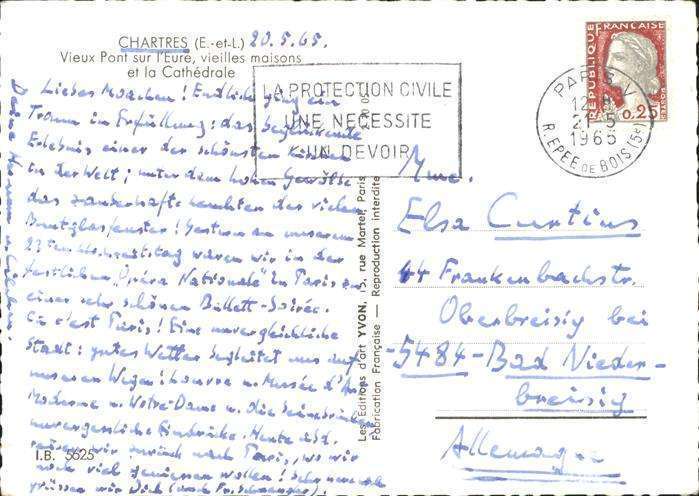 CHARTRES (E.-et-L.) 20.5.65.
Vieux Pont sur l'Eure, vieilles maisons
et la Cathédrale
Liebes Malchen! Endlich ging ein
Traum in Erfüllung: das beglückende
Erlebnis einer der schönsten Kirchen
in der Welt; unter dem hohen Gewölbe
das zauberhafte Leuchten der vielen
Buntglasfenster! Gestern an unserem
23ten Hochzeitstag waren wir in der
festlichen "Opéra Nationale" in Paris zu
einer sehr schönen Ballett-Soirée.
Ça c'est Paris! Eine unvergleichliche
Stadt: gutes Wetter begleitet uns auf
unseren Wegen: Louvre u. Musée d'Art
Moderne u. Notre-Dame u. die
unvergessliche Eindrücke. Heute Abd.
wir zurück nach Paris, wo wir
noch viel geniessen wollen!
grüssen wir Dich
I.B. 5625
Les Éditions d'art YVON, 15, rue Martel, Paris
Fabrication Française — Reproduction interdite
LA PROTECTION CIVILE
UNE NECESSITE
UN DEVOIR
PARIS V
12 H
21-5
1965
R. EPEE DE BOIS (5e)
REPUBLIQUE FRANÇAISE
POSTES
0,25
Mme.
Elsa Curtius
44 Frankenbachstr.
Oberbreisig bei
-5484-Bad Nieder-
breisig
Allemagne